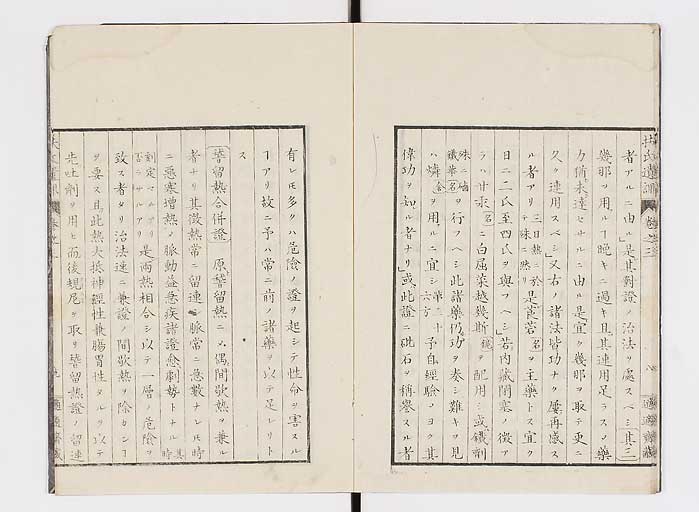 者アルニ由ル」是其對證ノ治法ヲ處スベシ其三
幾那ヲ用ルヿ晩キニ過キ且其連用足ラスノ藥
力猶未達セサルニ由ル是宜ク幾那ヲ取テ更ニ
久ク連用スベシ」又右ノ諸法皆功ナク屢再感ス
ル者アリ三日熱ニ於テ殊ニ然リ是莨若名ヲ主藥トス宜ク
日ニ二氏至四氏ヲ與フヘシ」若内藏閉塞ノ徴ア
ラハ甘汞名ニ白屈菜越幾斯ヲ配用シ或鐵劑
殊ニ磠鐵華名ヲ行フヘシ此諸藥仍功ヲ奏シ難キヲ見
ハ燐金ヲ用ルニ宜シ第二十六方予自經驗ノヨク其
偉功ヲ知ル者ナリ」或此證ニ砒石ヲ稱譽スル者
有レ𪜈多クハ危險ノ證ヲ起シテ性命ヲ害スル
ヿアリ故ニ予ハ常ニ前ノ諸藥ヲ以テ足レリト
ス
稽留熱合併證 原稽留熱ニ〆偶間歇熱ヲ兼ル
者ナリ其徴熱常ニ留連シ脈常ニ急數ナレ𪜈時
ニ惡寒增熱ノ脈動益急疾諸證愈劇勢トナル其時
刻定マルアリ否サルアリ是兩熱相合シ以テ一層ノ危險ヲ
致ス者タリ治法速ニ兼證ノ間歇熱ヲ除カンヿ
ヲ要ス且此熱大抵神經性兼腸胃性タルヲ以テ
先吐劑ヲ用ヒ而後規尼ヲ取リ稽留熱證ノ留連